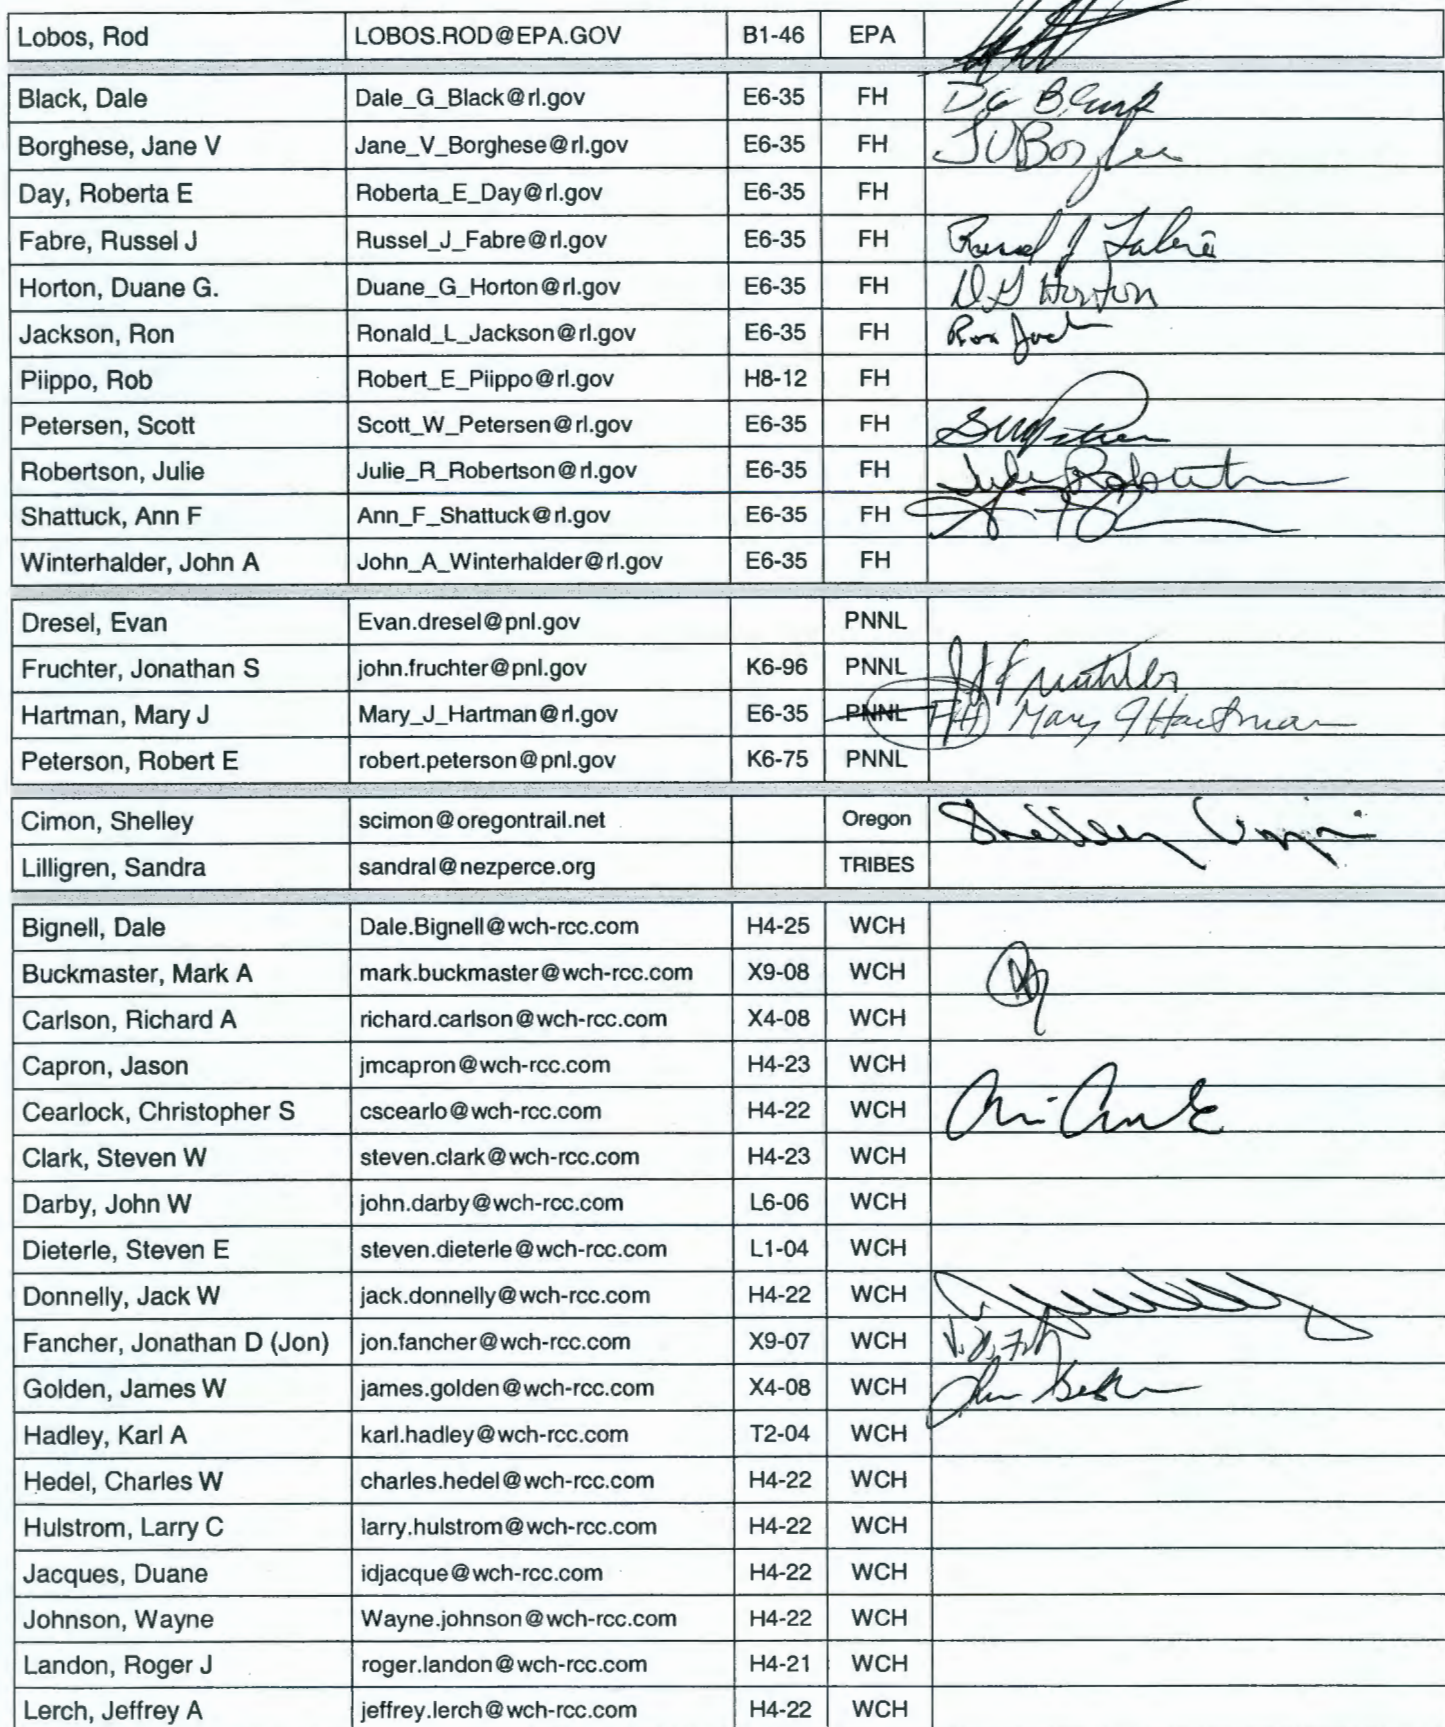 Lobos, Rod LOBOS.ROD@EPA.GOV B1-46 EPA
Black, Dale Dale_G_Black@rl.gov E6-35 FH
Borghese, Jane V Jane_V_Borghese@rl.gov E6-35 FH JVBorghese
Day, Roberta E Roberta_E_Day@rl.gov E6-35 FH
Fabre, Russel J Russel_J_Fabre@rl.gov E6-35 FH Russel J Fabre
Horton, Duane G. Duane_G_Horton@rl.gov E6-35 FH D G Horton
Jackson, Ron Ronald_L_Jackson@rl.gov E6-35 FH Ron
Piippo, Rob Robert_E_Piippo@rl.gov H8-12 FH
Petersen, Scott Scott_W_Petersen@rl.gov E6-35 FH
Robertson, Julie Julie_R_Robertson@rl.gov E6-35 FH Julie Robertson
Shattuck, Ann F Ann_F_Shattuck@rl.gov E6-35 FH
Winterhalder, John A John_A_Winterhalder@rl.gov E6-35 FH
Dresel, Evan Evan.dresel@pnl.gov PNNL
Fruchter, Jonathan S john.fruchter@pnl.gov K6-96 PNNL
Hartman, Mary J Mary_J_Hartman@rl.gov E6-35 PNNL FH Mary J Hartman
Peterson, Robert E robert.peterson@pnl.gov K6-75 PNNL
Cimon, Shelley scimon@oregontrail.net Oregon Shelley Cimon
Lilligren, Sandra sandral@nezperce.org TRIBES
Bignell, Dale Dale.Bignell@wch-rcc.com H4-25 WCH
Buckmaster, Mark A mark.buckmaster@wch-rcc.com X9-08 WCH
Carlson, Richard A richard.carlson@wch-rcc.com X4-08 WCH
Capron, Jason jmcapron@wch-rcc.com H4-23 WCH
Cearlock, Christopher S cscearlo@wch-rcc.com H4-22 WCH
Clark, Steven W steven.clark@wch-rcc.com H4-23 WCH
Darby, John W john.darby@wch-rcc.com L6-06 WCH
Dieterle, Steven E steven.dieterle@wch-rcc.com L1-04 WCH
Donnelly, Jack W jack.donnelly@wch-rcc.com H4-22 WCH
Fancher, Jonathan D (Jon) jon.fancher@wch-rcc.com X9-07 WCH
Golden, James W james.golden@wch-rcc.com X4-08 WCH
Hadley, Karl A karl.hadley@wch-rcc.com T2-04 WCH
Hedel, Charles W charles.hedel@wch-rcc.com H4-22 WCH
Hulstrom, Larry C larry.hulstrom@wch-rcc.com H4-22 WCH
Jacques, Duane idjacque@wch-rcc.com H4-22 WCH
Johnson, Wayne Wayne.johnson@wch-rcc.com H4-22 WCH
Landon, Roger J roger.landon@wch-rcc.com H4-21 WCH
Lerch, Jeffrey A jeffrey.lerch@wch-rcc.com H4-22 WCH